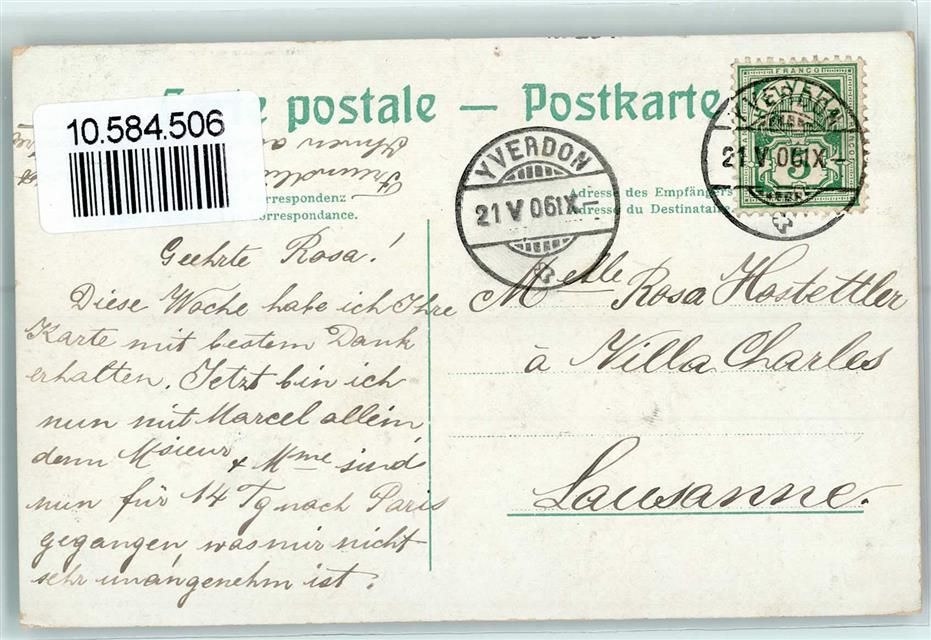 10.584.506
postale — Postkarte
FRANCO
YVERDON
21 V 06 IX–
YVERDON
21 V 06 IX–
5
Ihnen
Freundl
rrespondenz
orrespondance.
Adresse des Empfängers
Adresse du Destinataire
Geehrte Rosa!
Diese Woche habe ich Ihre
Karte mit bestem Dank
erhalten. Jetzt bin ich
nun mit Marcel allein,
denn Msieur & Mme sind
nun für 14 Tg nach Paris
gegangen was mir nicht
sehr unangenehm ist.
Melle Rosa Hostettler
à Villa Charles
Lausanne.